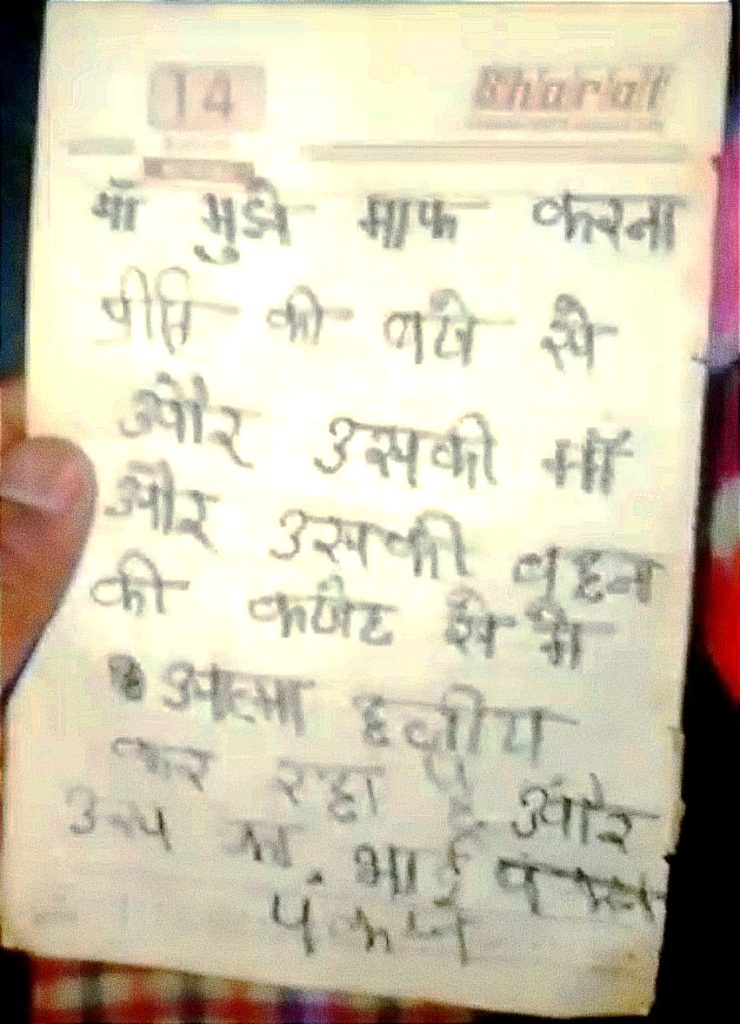 14
Bharat
माँ मुझे माफ करना
प्रीति की बजे से
और उसकी माँ
और उसकी बहन
की कजेह से मे
आत्मा हत्तीय
कर रहा हूँ और
उस का भाई
पंकज